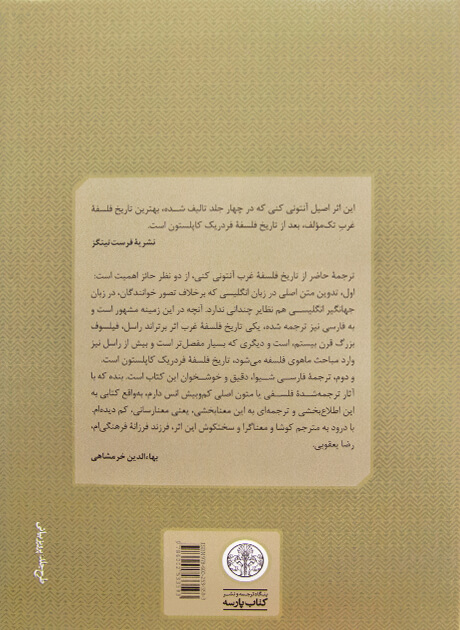 این اثر اصیل آنتونی کنی که در چهار جلد تالیف شده، بهترین تاریخ فلسفهٔ
غرب تک‌مؤلف، بعد از تاریخ فلسفهٔ فردریک کاپلستون است.
نشریهٔ فرست تینگز
ترجمهٔ حاضر از تاریخ فلسفهٔ غرب آنتونی کنی، از دو نظر حائز اهمیت است:
اول، تدوین متن اصلی در زبان انگلیسی که برخلاف تصور خوانندگان، در زبان
جهانگیر انگلیسی هم نظایر چندانی ندارد. آنچه در این زمینه مشهور است و
به فارسی نیز ترجمه شده، یکی تاریخ فلسفهٔ غرب اثر برتراند راسل، فیلسوف
بزرگ قرن بیستم، است و دیگری که بسیار مفصل‌تر است و بیش از راسل نیز
وارد مباحث ماهوی فلسفه می‌شود، تاریخ فلسفهٔ فردریک کاپلستون است.
و دوم، ترجمهٔ فارسی شیوا، دقیق و خوشخوان این کتاب است. بنده که با
آثار ترجمه‌شدهٔ فلسفی یا متون اصلی کم‌وبیش انس دارم، به‌واقع کتابی به
این اطلاع‌بخشی و ترجمه‌ای به این معنابخشی، یعنی معنارسانی، کم دیده‌ام.
با درود به مترجم کوشا و معناگرا و سختکوش این اثر، فرزند فرزانهٔ فرهنگی‌ام،
رضا یعقوبی.
بهاءالدین خرمشاهی
طرح جلد: پرویز بیانی
بنگاه ترجمه و نشر
کتاب پارسه